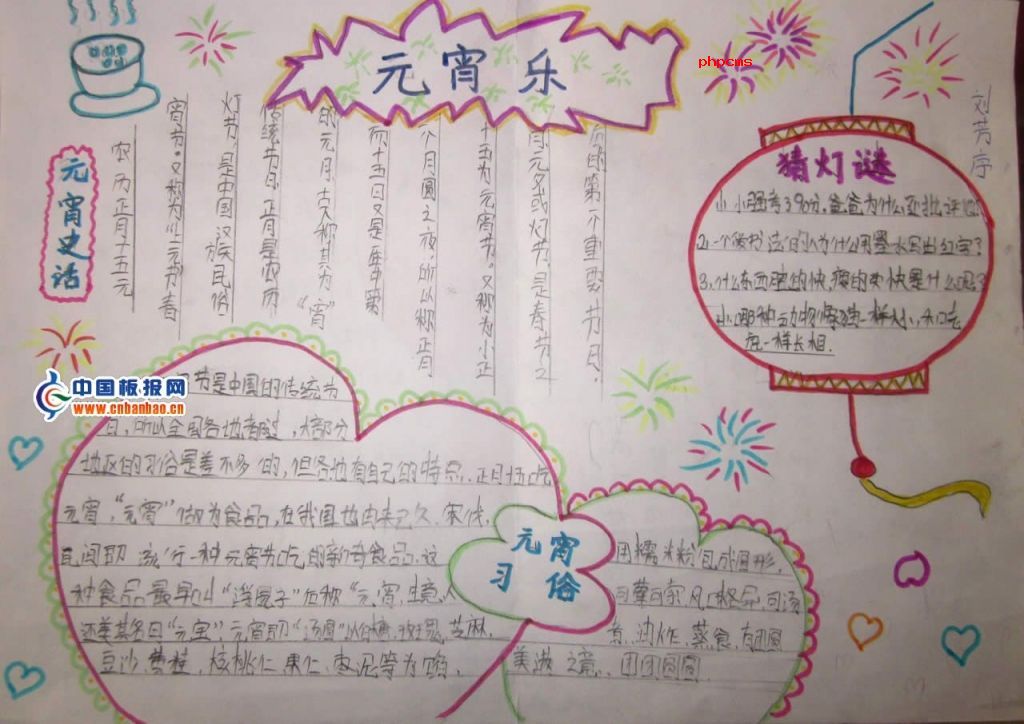 元宵乐
phpcms
刘芳序
元宵史话
农历正月十五元
宵节。又称为"上元节"春
灯节，是中国汉族民俗
传统节日。正月是农历
的元月，古人称其为"宵"
而十五日又是一年中第
个月圆之夜，所以称正月
十五为元宵节。又称为小正
月、元夕或灯节，是春节之
后的第一个重要节日。
猜灯谜
小 小明考390分，爸爸为什么还批评他
2.一个爱书法的人为什么用墨水写出红字？
3.什么东西
一样大小，
一样长相.
节是中国的传统为
日，所以全国各地都过，大部分
地区的习俗是差不多的，但各地有自己的特点。正月十五吃
元宵，"元宵"做为食品，在我国也由来已久，宋代，
民间即流行一种元宵节吃的新奇食品。这
种食品最早叫"浮圆子"后称"元宵，生意人
还美其名曰"元宝"，元宵即"汤圆"以白糖，玫瑰，芝麻，
豆沙，黄桂，核桃仁 果仁，枣泥等为馅，
元宵
习俗
用糯米粉包成圆形，
可荤可素，风味各异。可汤
煮，油炸，蒸食，有团圆
美满之意。团团圆圆
中国板报网
www.cnbanbao.cn